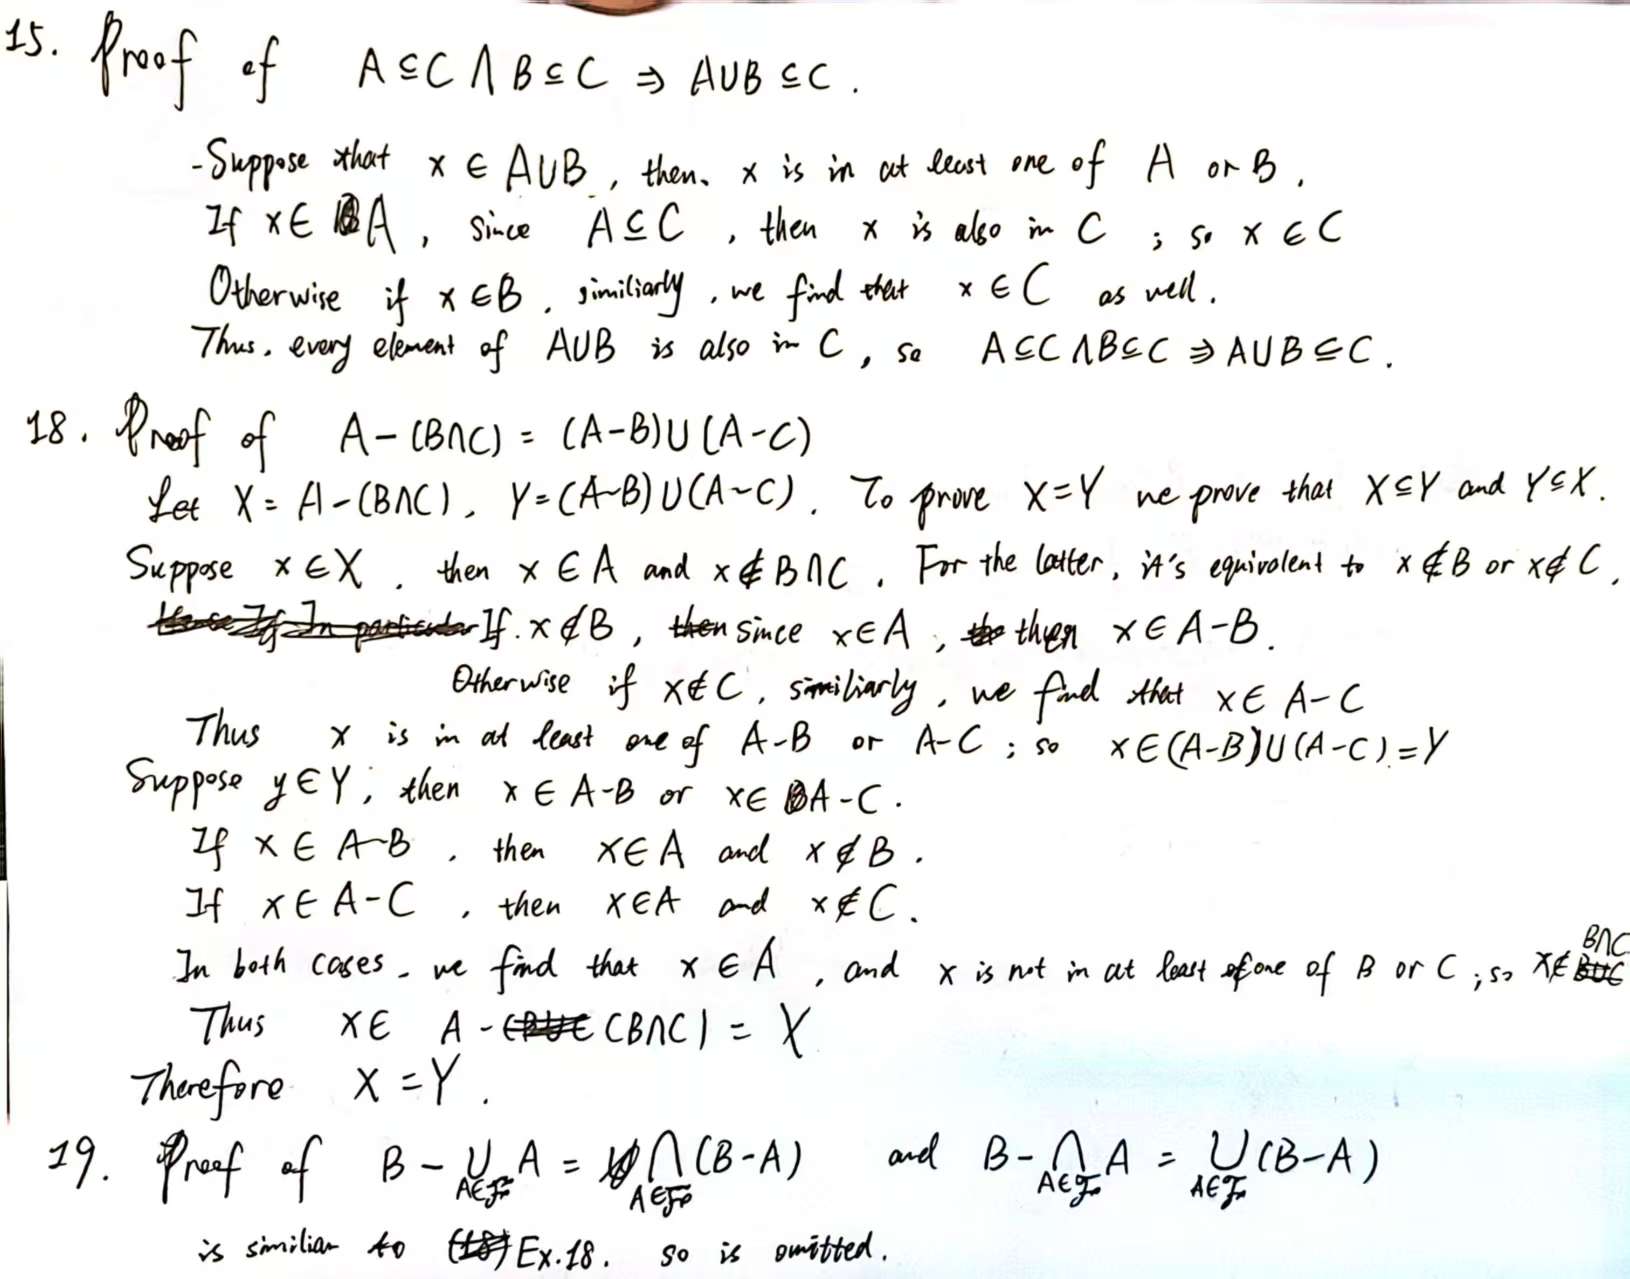 15. Proof of A⊆C ∧ B⊆C ⇒ A∪B⊆C.
-Suppose that x ∈ A∪B, then. x is in at least one of A or B,
If x∈ A, since A⊆C, then x is also in C ; so x ∈ C
Otherwise if x ∈B. similiarly, we find that x ∈ C as well.
Thus, every element of A∪B is also in C, so A⊆C ∧B⊆C ⇒ A∪B⊆C.
18. Proof of A-(B∩C) = (A-B)∪(A-C)
Let X = A-(B∩C), Y=(A-B)∪(A-C). To prove X=Y we prove that X⊆Y and Y⊆X.
Suppose x ∈X. then x ∈ A and x∉B∩C. For the latter, it's equivalent to x∉B or x∉C,
If. x∉B, since x∈A, then x∈A-B.
Otherwise if x∉C, similiarly, we find that x∈ A-C
Thus x is in at least one of A-B or A-C ; so x∈(A-B)∪(A-C).=Y
Suppose y∈Y; then x ∈ A-B or x∈ A-C.
If x ∈ A-B, then x∈A and x∉B.
If x∈A-C, then x∈A and x∉C.
In both cases, we find that x ∈A, and x is not in at least one of B or C ; so x∉ B∩C
Thus x∈ A-(B∩C) = X
Therefore X = Y.
19. Proof of B-⋃_{A∈ℱ} A = ⋂_{A∈ℱ}(B-A) and B-⋂_{A∈ℱ} A = ⋃_{A∈ℱ}(B-A)
is similiar to Ex.18. so is omitted.